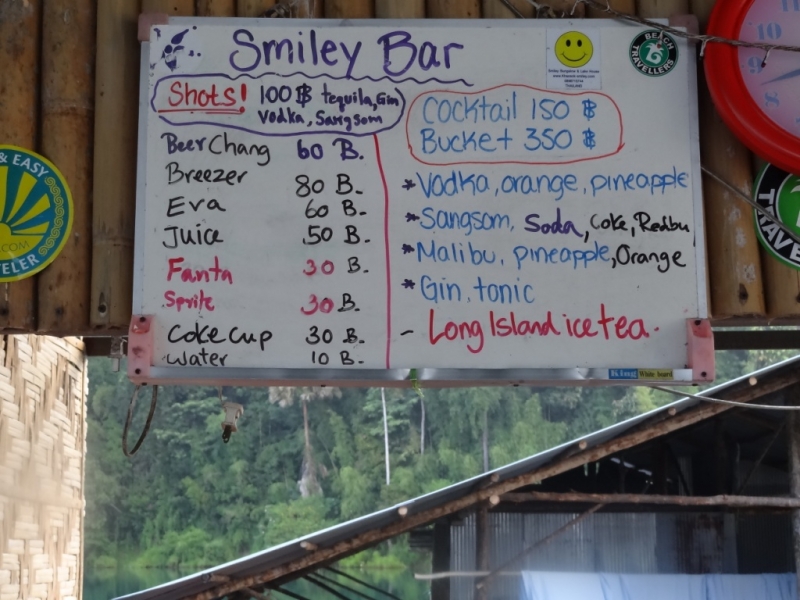 Smiley Bar
BEACH
TRAVELLERS
Shots! 100 ฿ tequila, Gin
Vodka, Sangsom
Cocktail 150 ฿
Bucket 350 ฿
Beer Chang 60 B.
Breezer 80 B.
Eva 60 B.
Juice 50 B.
Fanta 30 B.
Sprite 30 B.
Coke cup 30 B.
Water 10 B.
*Vodka, orange, pineapple
*Sangsom, Soda, Coke, Redbu
*Malibu, pineapple, Orange
*Gin, tonic
- Long Island ice tea.
White board
& EASY
.COM
VELER
TRAVE
10